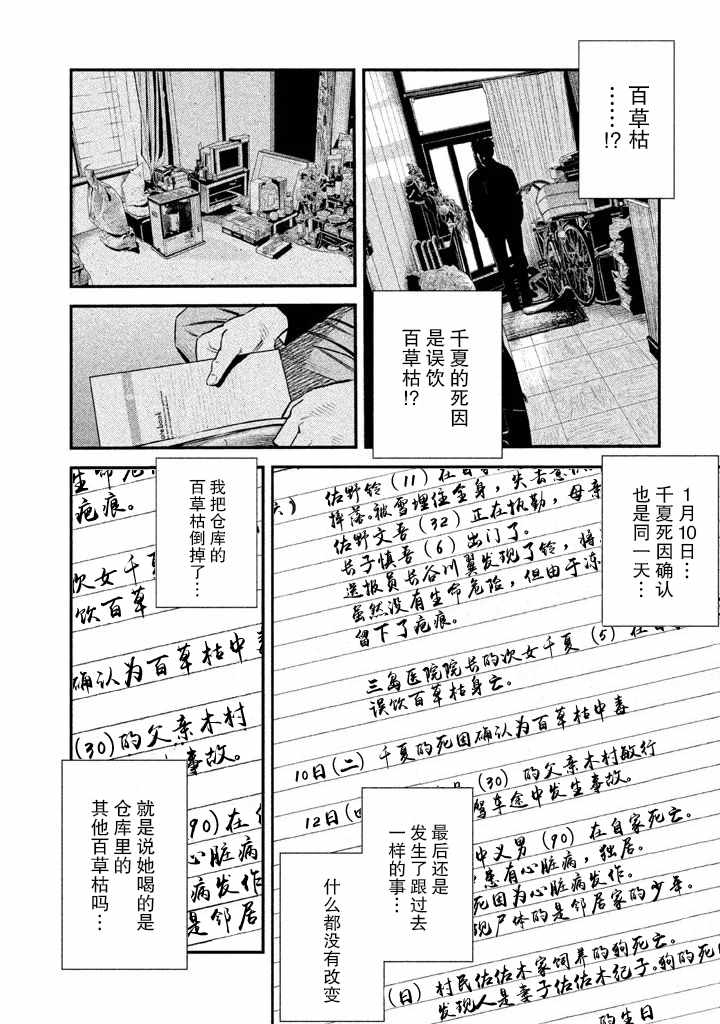 百草枯
……!?
千夏的死因
是误饮
百草枯!?
notebook
1月10日…
千夏死因确认
也是同一天…
佐野铃（11）在
摔落。被雪埋住全身，失去意
佐野文吾（32）正在执勤，母亲
长子慎吾（6）出门了。
送报员长谷川翼发现了铃，将
虽然没有生命危险，但由于冻
留下了疤痕。
三岛医院院长的次女千夏（5）在
误饮百草枯身亡。
10日（二）千夏的死因确认为百草枯中毒
12日（四
（30）的父亲木村敏行
驾车途中发生事故。
中义男（90）在自家死亡。
患有心脏病，独居。
死因为心脏病发作。
现尸体的是邻居家的少年。
（日）村民佐佐木家饲养的狗死亡。
发现人是妻子佐佐木纪子。狗的死
的生日
最后还是
发生了跟过去
一样的事…
什么都没有
改变
我把仓库的
百草枯倒掉了…
生命危
疤痕。
次女千夏
饮百草
确认为百草枯中毒
（30）的父亲木村
事故。
90）在
心脏病
病发作
是邻居
就是说她喝的是
仓库里的
其他百草枯吗…